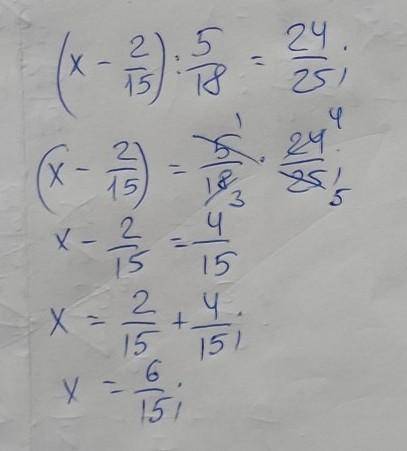 (x - 2/15) : 5/18 = 24/25;
(x - 2/15) = 5/18 · 24/25; 1 3 4 5
x - 2/15 = 4/15
x = 2/15 + 4/15;
x = 6/15;